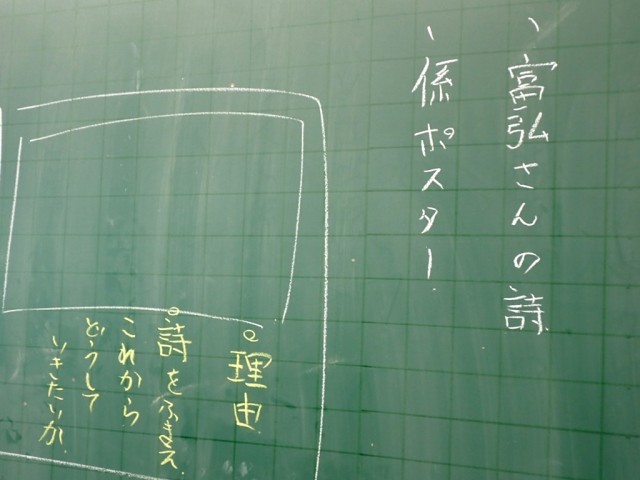 、富弘さんの詩
、係ポスター
○理由
○詩をふまえ
これから
どうして
いきたいか